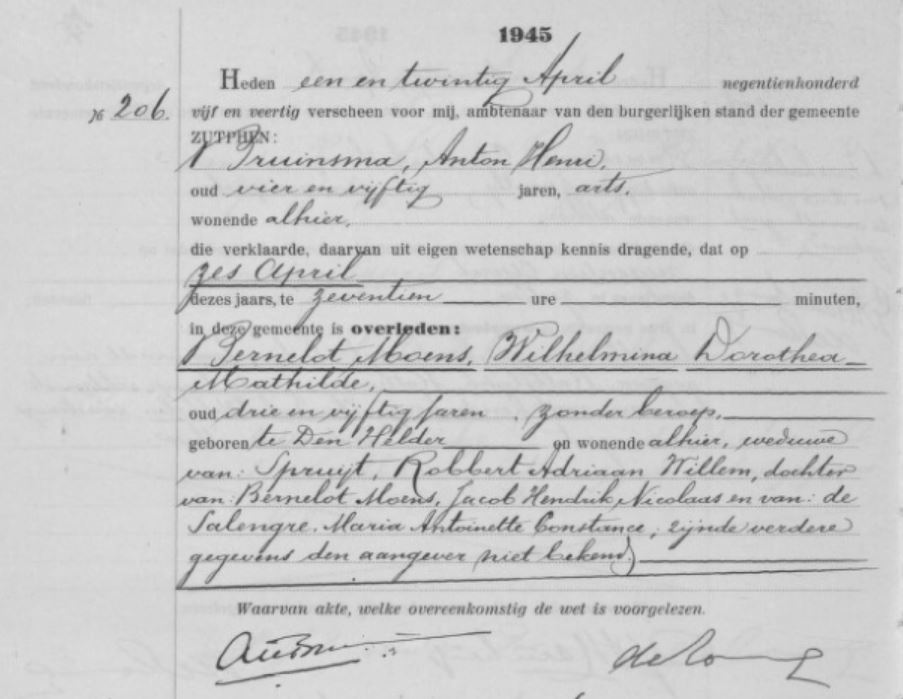 1945
Heden een en twintig April negentienhonderd
№ 206. vijf en veertig verscheen voor mij, ambtenaar van den burgerlijken stand der gemeente
ZUTPHEN:
Bruinsma, Anton Henri,
oud vier en vijftig jaren, arts,
wonende alhier,
die verklaarde, daarvan uit eigen wetenschap kennis dragende, dat op
zes April
dezes jaars, te zeventien ure minuten,
in deze gemeente is overleden:
Bernelot Moens, Wilhelmina Dorothea
Mathilde,
oud drie en vijftig jaren, zonder beroep,
geboren te Den Helder en wonende alhier, weduwe
van: Spruijt, Robbert Adriaan Willem, dochter
van: Bernelot Moens, Jacob Hendrik Nicolaas en van: de
Salengre, Maria Antoinette Constance, zijnde verdere
gegevens den aangever niet bekend)
Waarvan akte, welke overeenkomstig de wet is voorgelezen.